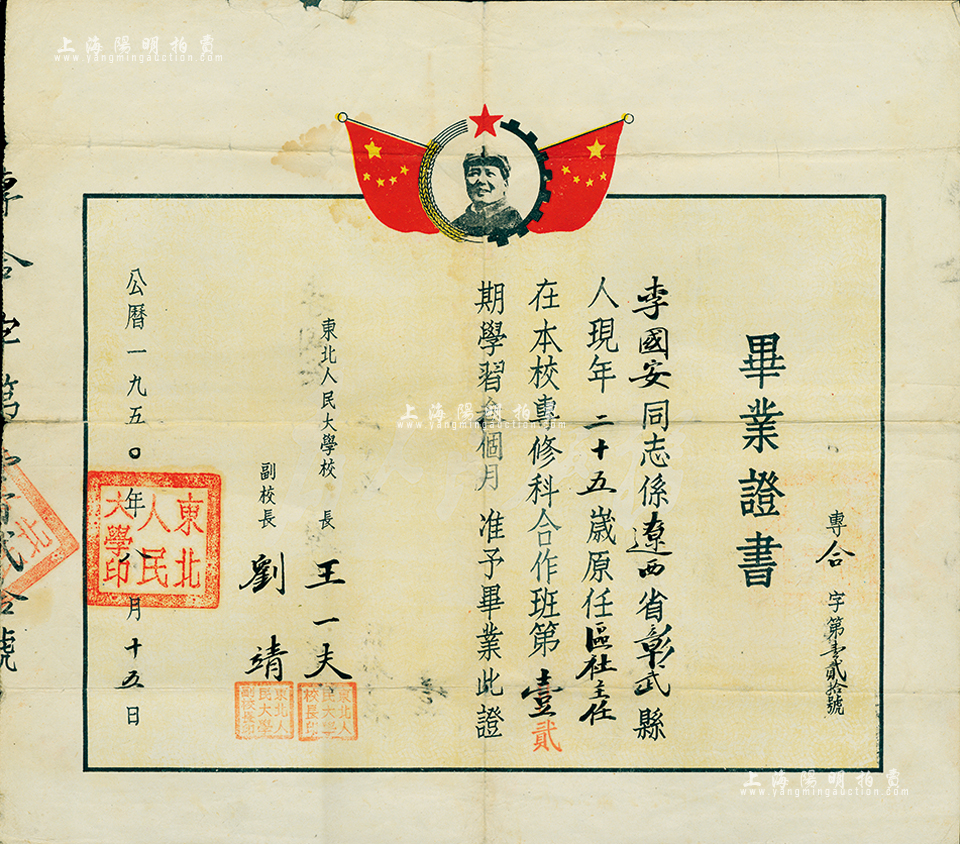 上海陽明拍賣
www.yangmingauction.com
畢業證書
專合字第壹貳拾號
李國安同志係遼西省彰武縣
人現年二十五歲原任區社主任
在本校專修科合作班第壹
貳
期學習叁個月準予畢業此證
東北人民大學校長王一夫
副校長劉靖
東北人民大學校長印
東北人民大學副校長印
公曆一九五〇年八月十五日
東北人民大學印
上海陽明拍賣
www.yangmingauction.com
上海陽明拍賣
www.yangmingauction.com